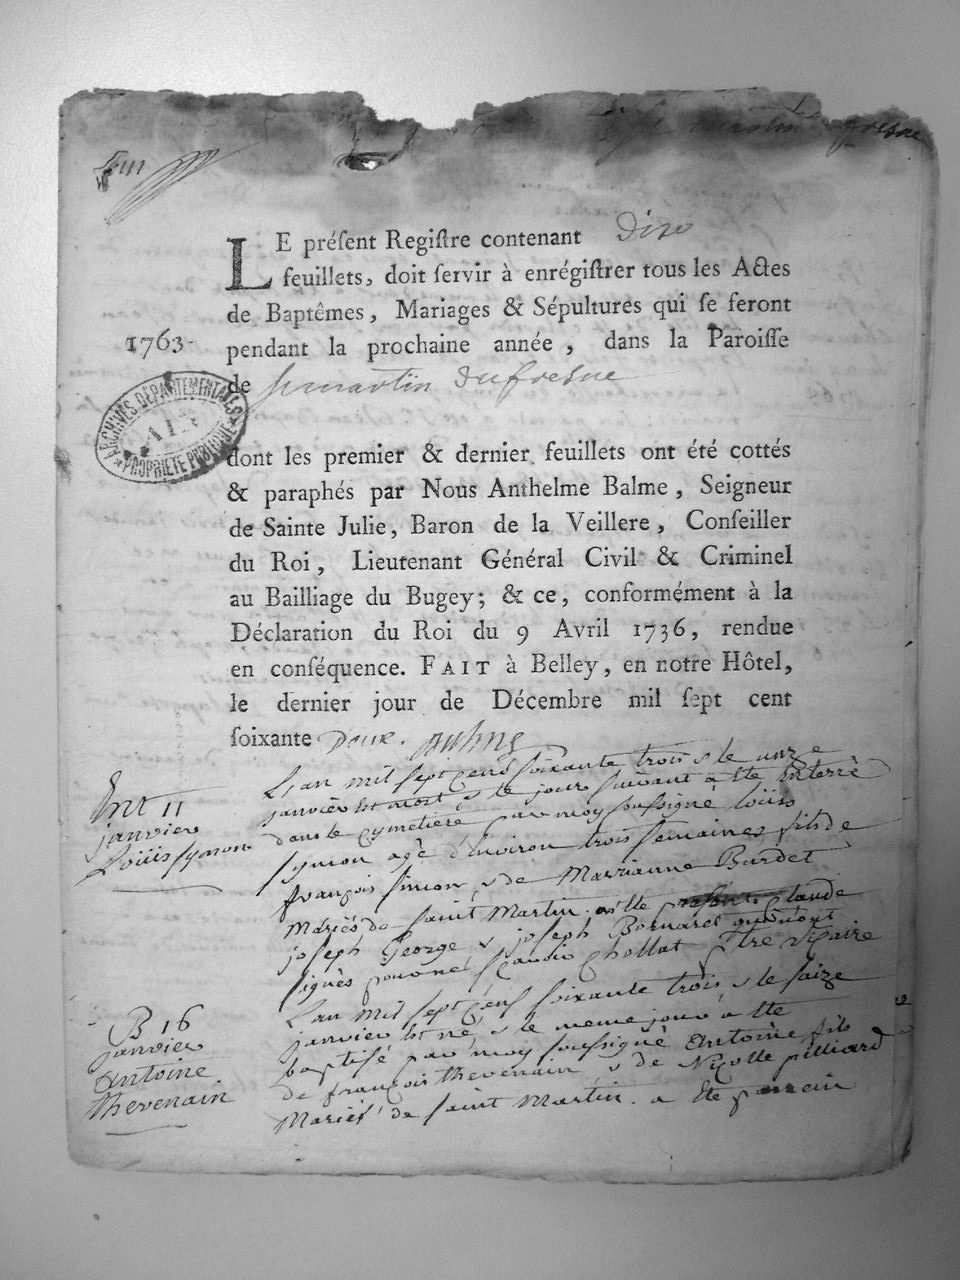 martin dufresne
LE préſent Regiſtre contenant Dixe
feuillets, doit ſervir à enrégiſtrer tous les Actes
de Baptêmes, Mariages & Sépultures qui ſe feront
1763.
pendant la prochaine année, dans la Paroiſſe
de st martin dufresne
ARCHIVES DÉPARTEMENTALES
AIN
PROPRIÉTÉ PUBLIQUE
dont les premier & dernier feuillets ont été cottés
& paraphés par Nous Anthelme Balme, Seigneur
de Sainte Julie, Baron de la Veillere, Conſeiller
du Roi, Lieutenant Général Civil & Criminel
au Bailliage du Bugey; & ce, conformément à la
Déclaration du Roi du 9 Avril 1736, rendue
en conſéquence. FAIT à Belley, en notre Hôtel,
le dernier jour de Décembre mil ſept cent
ſoixante Deux.
Ent 11
janvier
Loüis symon
L'an mil sept cens soixante trois & le unze
janvier est mort & le jour suivant a été enterré
dans le cymetière par moy soussigné loüis
symon agé d'environ trois semaines fils de
françois simon & de Marianne Burdet
Mariés de saint Martin. a été presents claude
joseph George & joseph Bernard qui n'ont
signés pour ne Claudio Chollat ptre vicaire
B 16
janvier
Antoine
thevenain
L'an mil sept cens soixante trois & le saize
janvier est né & le meme jour a été
baptisé par moy soussigné Antoine fils
de françois thevenain & de Nicolle pilliard
Mariés de saint Martin. a été parrain